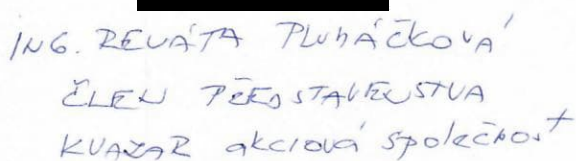 ING. RENÁTA PLUHÁČKOVÁ
ČLEN PŘEDSTAVENSTVA
KVAZAR akciová společnost